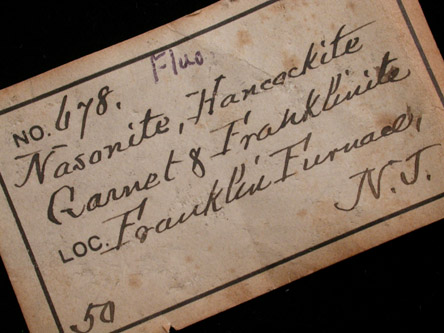 Fluo
NO. 678.
Nasonite, Hancockite
Garnet & Franklinite
LOC. Franklin Furnace,
N.J.
50